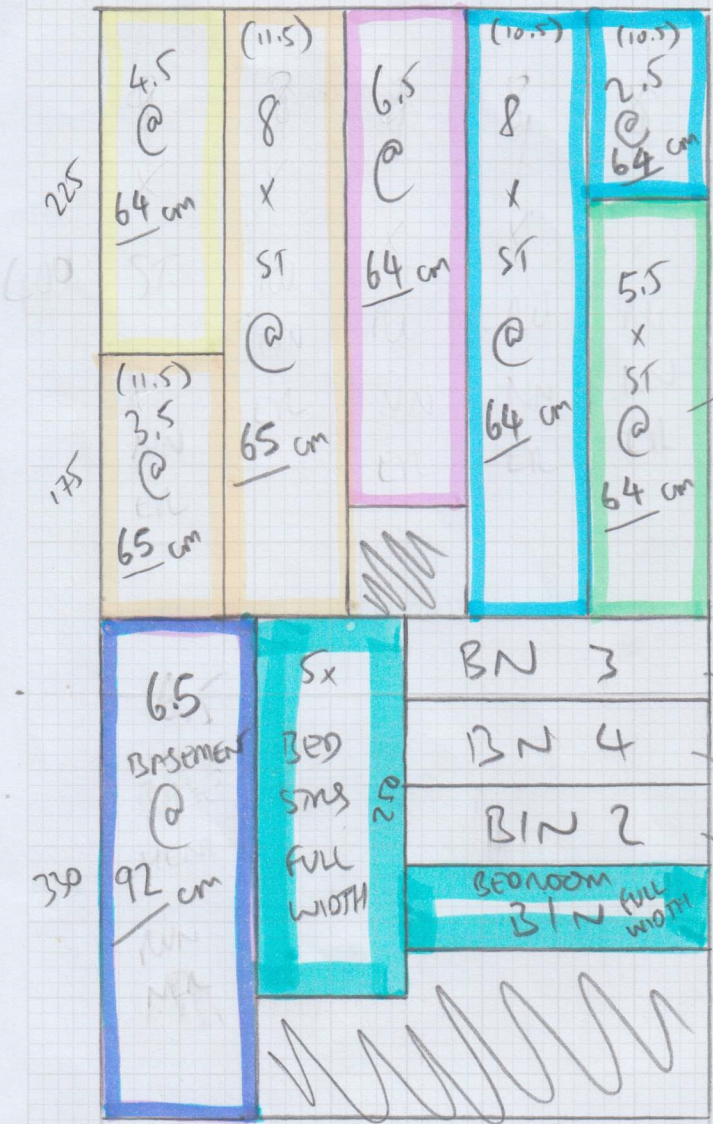 4.5
@
64 cm
225
(11.5)
3.5
@
65 cm
175
(11.5)
8
x
ST
@
65 cm
6.5
@
64 cm
(10.5)
8
x
ST
@
64 cm
(10.5)
2.5
@
64 cm
5.5
x
ST
@
64 cm
6.5
BASEMENT
@
92 cm
330
5x
BED
STRS
FULL
WIDTH
250
BN 3
BN 4
BIN 2
BEDROOM
BIN FULL
WIDTH